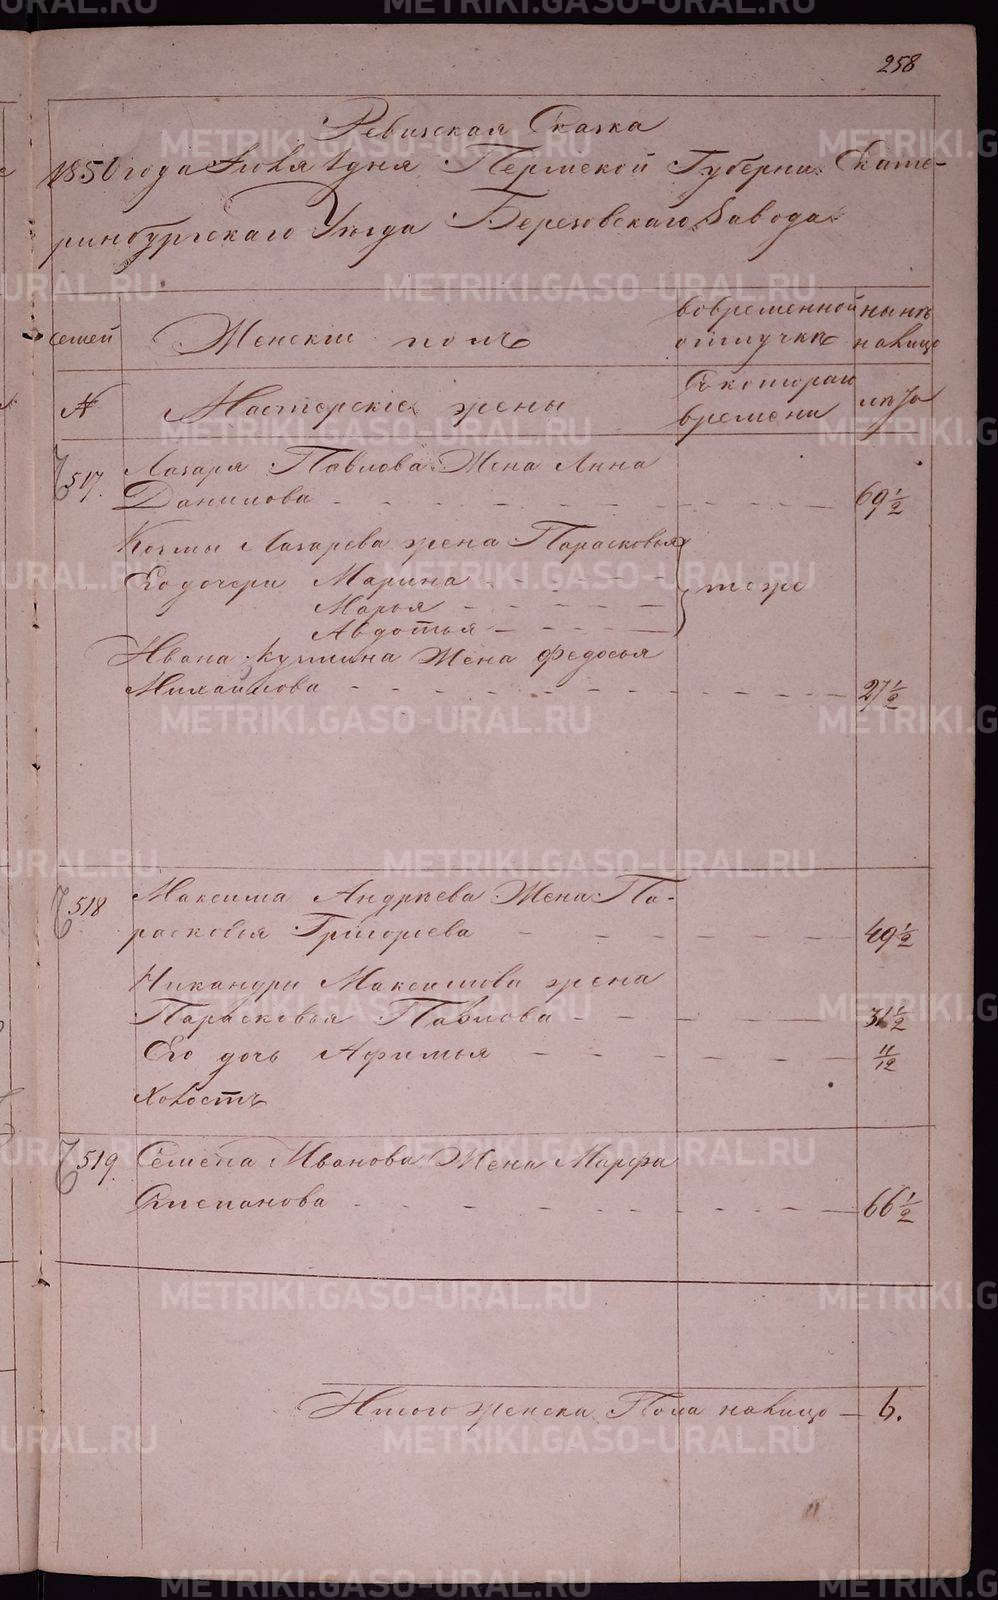 258
Ревизская Сказка
1850 года Июля 1 дня Пермской Губернии Екате-
ринбургскаго Уезда Березовскаго Завода
семей
Женский полъ
вовременной
отлучкѣ
нынѣ
налицо
№
Мастерские жены
Съ котораго
времени
лѣта
517. Лазаря Павлова Жена Анна
Данилова - - - - - - - - - 69 1/2
Козмы Лазарева жена Парасковья
Его дочери Марина - - - - тоже
Марья - - - -
Авдотья - - - -
Ивана Кузмина Жена Федосья
Михайлова - - - - - - - - - 27 1/2
518 Максима Андреева Жена Па-
расковья Григорьева - - - - - 49 1/2
Никандры Максимова жена
Парасковья Павлова - - - - - 31 1/2
Его дочь Афимья - - - - - 11/12
Холостъ
519. Семена Иванова Жена Марфа
Степанова - - - - - - - - 66 1/2
Итого женска Пола налицо - 6.
METRIKI.GASO-URAL.RU